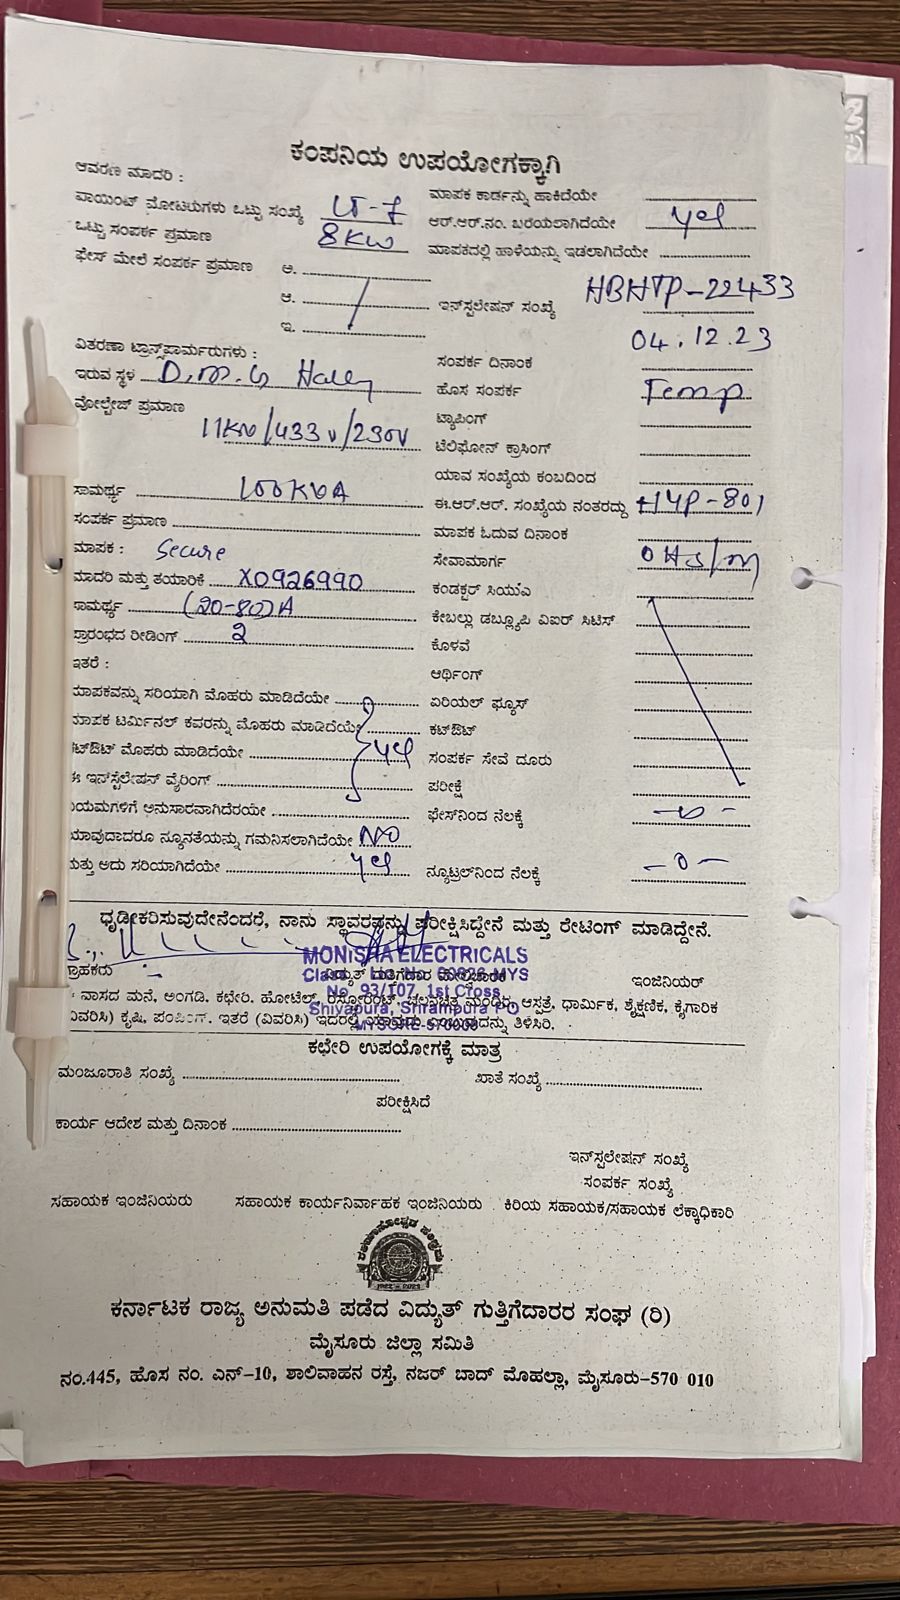 ಕಂಪನಿಯ ಉಪಯೋಗಕ್ಕಾಗಿ
ಆವರಣ ಮಾದರಿ :
ಮಾಪಕ ಕಾರ್ಡನ್ನು ಹಾಕಿದೆಯೇ
ವಾಯಿಂಟ್ ಮೋಟರುಗಳು ಒಟ್ಟು ಸಂಖ್ಯೆ LT-7
ಆರ್.ಆರ್.ನಂ. ಬರೆಯಲಾಗಿದೆಯೇ yes
ಒಟ್ಟು ಸಂಪರ್ಕ ಪ್ರಮಾಣ 8KW
ಮಾಪಕದಲ್ಲಿ ಹಾಳೆಯನ್ನು ಇಡಲಾಗಿದೆಯೇ
ಫೇಸ್ ಮೇಲೆ ಸಂಪರ್ಕ ಪ್ರಮಾಣ ಅ.
ಆ.
ಇನ್‌ಸ್ಟಲೇಷನ್ ಸಂಖ್ಯೆ HBHTP-22433
ಇ.
04.12.23
ವಿತರಣಾ ಟ್ರಾನ್ಸ್‌ಫಾರ್ಮರುಗಳು :
ಸಂಪರ್ಕ ದಿನಾಂಕ
ಇರುವ ಸ್ಥಳ D.M.G Hally
ಹೊಸ ಸಂಪರ್ಕ Temp
ವೋಲ್ಟೇಜ್ ಪ್ರಮಾಣ
ಟ್ಯಾಪಿಂಗ್
11KV/433v/230V
ಟೆಲಿಫೋನ್ ಕ್ರಾಸಿಂಗ್
ಯಾವ ಸಂಖ್ಯೆಯ ಕಂಬದಿಂದ
ಸಾಮರ್ಥ್ಯ 100KVA
ಈ.ಆರ್.ಆರ್. ಸಂಖ್ಯೆಯ ನಂತರದ್ದು HYP-801
ಸಂಪರ್ಕ ಪ್ರಮಾಣ
ಮಾಪಕ ಓದುವ ದಿನಾಂಕ
ಮಾಪಕ : Secure
ಸೇವಾಮಾರ್ಗ OHS/M
ಮಾದರಿ ಮತ್ತು ತಯಾರಿಕೆ X0926990
ಕಂಡಕ್ಟರ್ ಸಿಯುಎ
ಸಾಮರ್ಥ್ಯ (20-80)A
ಕೇಬಲ್ಲು ಡಬ್ಲ್ಯೂಪಿ ವಿಐರ್ ಸಿಟಿಸ್
ಪ್ರಾರಂಭದ ರೀಡಿಂಗ್ 2
ಕೊಳವೆ
ಇತರೆ :
ಆರ್ಥಿಂಗ್
ಮಾಪಕವನ್ನು ಸರಿಯಾಗಿ ಮೊಹರು ಮಾಡಿದೆಯೇ
ಏರಿಯಲ್ ಫ್ಯೂಸ್
ಮಾಪಕ ಟರ್ಮಿನಲ್ ಕವರನ್ನು ಮೊಹರು ಮಾಡಿದೆಯೇ
ಕಟ್‌ಔಟ್
ಕಟ್‌ಔಟ್ ಮೊಹರು ಮಾಡಿದೆಯೇ yes
ಸಂಪರ್ಕ ಸೇವೆ ದೂರು
ಈ ಇನ್‌ಸ್ಟೆಲೇಷನ್ ವೈರಿಂಗ್
ಪರೀಕ್ಷೆ
ನಿಯಮಗಳಿಗೆ ಅನುಸಾರವಾಗಿದೆರೆಯೇ
ಫೇಸ್‌ನಿಂದ ನೆಲಕ್ಕೆ -0-
ಯಾವುದಾದರೂ ನ್ಯೂನತೆಯನ್ನು ಗಮನಿಸಲಾಗಿದೆಯೇ NO
ಮತ್ತು ಅದು ಸರಿಯಾಗಿದೆಯೇ yes
ನ್ಯೂಟ್ರಲ್‌ನಿಂದ ನೆಲಕ್ಕೆ -0-
ಧೃಡೀಕರಿಸುವುದೇನೆಂದರೆ, ನಾನು ಸ್ಥಾವರವನ್ನು ಪರೀಕ್ಷಿಸಿದ್ದೇನೆ ಮತ್ತು ರೇಟಿಂಗ್ ಮಾಡಿದ್ದೇನೆ.
MONISHA ELECTRICALS
ಗ್ರಾಹಕರು
ವಿದ್ಯುತ್ ಗುತ್ತಿಗೆದಾರ
ಇಂಜಿನಿಯರ್
No. 93/107, 1st Cross
Shivapura, Srirampura PO
ವಾಸದ ಮನೆ, ಅಂಗಡಿ, ಕಛೇರಿ, ಹೋಟೆಲ್, ರೆಸ್ಟೋರೆಂಟ್, ಚಲನಚಿತ್ರ ಮಂದಿರ, ಆಸ್ಪತ್ರೆ, ಧಾರ್ಮಿಕ, ಶೈಕ್ಷಣಿಕ, ಕೈಗಾರಿಕ
(ವಿವರಿಸಿ) ಕೃಷಿ, ಪಂಪಿಂಗ್, ಇತರೆ (ವಿವರಿಸಿ) ತಿಳಿಸಿರಿ.
ಕಛೇರಿ ಉಪಯೋಗಕ್ಕೆ ಮಾತ್ರ
ಮಂಜೂರಾತಿ ಸಂಖ್ಯೆ
ಖಾತೆ ಸಂಖ್ಯೆ
ಪರೀಕ್ಷಿಸಿದೆ
ಕಾರ್ಯ ಆದೇಶ ಮತ್ತು ದಿನಾಂಕ
ಇನ್‌ಸ್ಟಲೇಷನ್ ಸಂಖ್ಯೆ
ಸಂಪರ್ಕ ಸಂಖ್ಯೆ
ಸಹಾಯಕ ಇಂಜಿನಿಯರು ಸಹಾಯಕ ಕಾರ್ಯನಿರ್ವಾಹಕ ಇಂಜಿನಿಯರು ಕಿರಿಯ ಸಹಾಯಕ/ಸಹಾಯಕ ಲೆಕ್ಕಾಧಿಕಾರಿ
ಕರ್ನಾಟಕ ರಾಜ್ಯ ಅನುಮತಿ ಪಡೆದ ವಿದ್ಯುತ್ ಗುತ್ತಿಗೆದಾರರ ಸಂಘ (ರಿ)
ಮೈಸೂರು ಜಿಲ್ಲಾ ಸಮಿತಿ
ನಂ.445, ಹೊಸ ನಂ. ಎನ್-10, ಶಾಲಿವಾಹನ ರಸ್ತೆ, ನಜರ್ ಬಾದ್ ಮೊಹಲ್ಲಾ, ಮೈಸೂರು-570 010